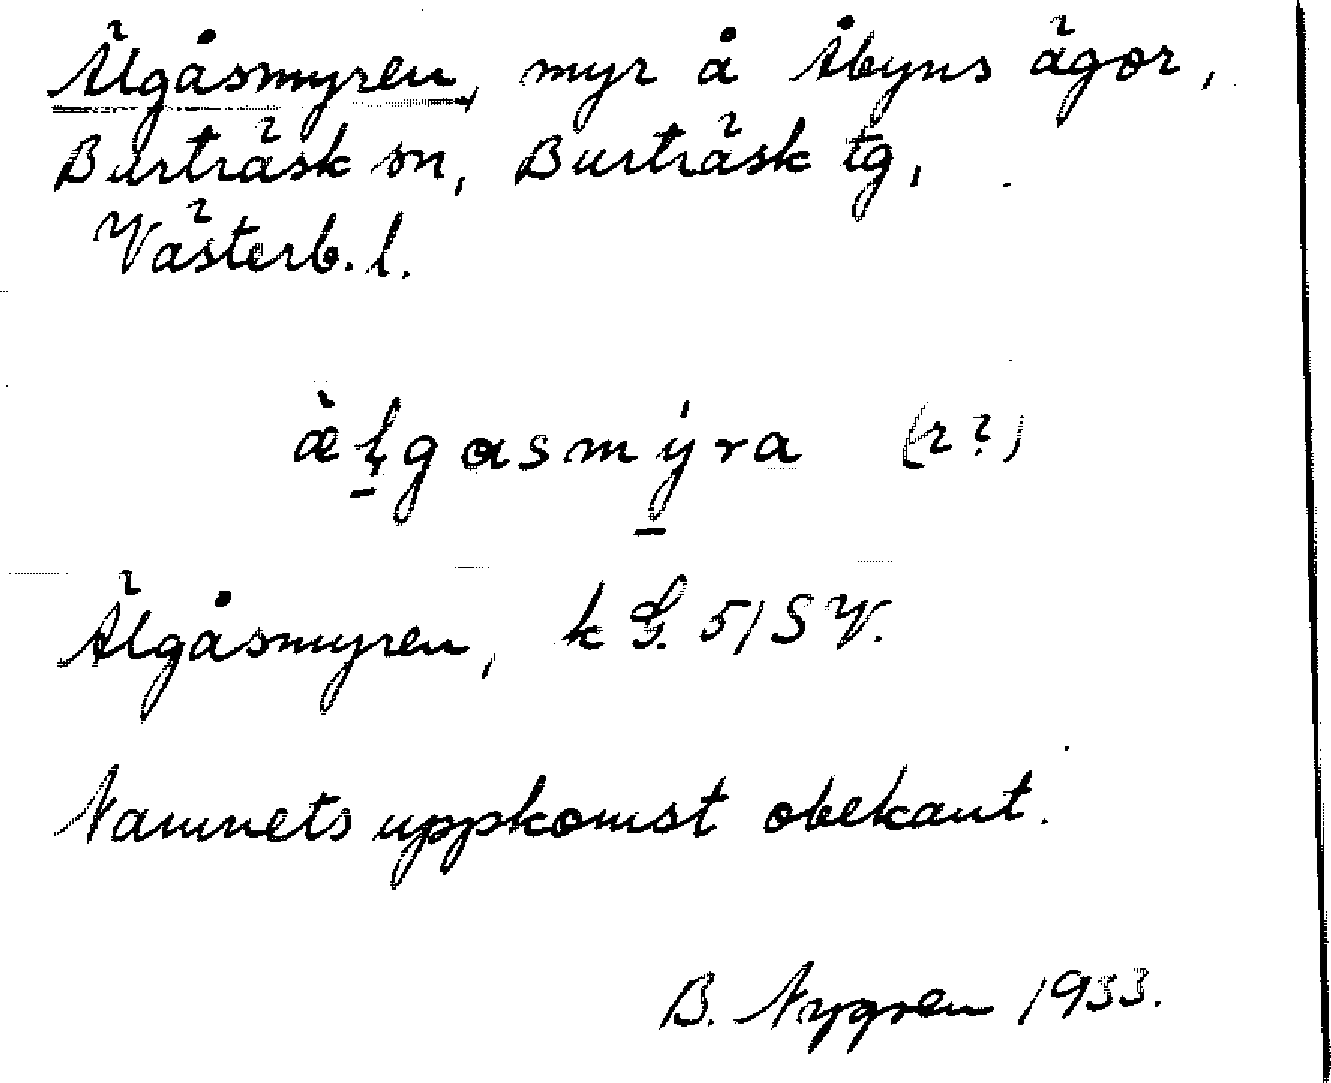 Älgåsmyren, myr å Åbyns ägor,
Burträsk sn, Burträsk tg,
Västerb. l.
æ̀l̥gasmýra (r?)
Älgåsmyren, k G. 51 S V.
Namnets uppkomst obekant.
B. Nygren 1933.